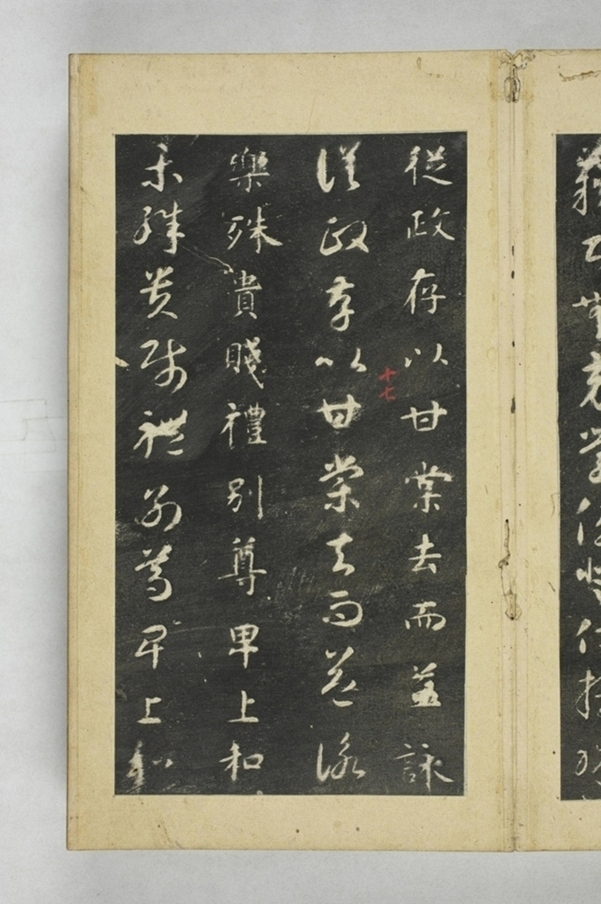 籍甚無竟學優登仕攝職
從政存以甘棠去而益詠
十七
從政存以甘棠去而益詠
樂殊貴賤禮別尊卑上和
樂殊貴賤禮別尊卑上和